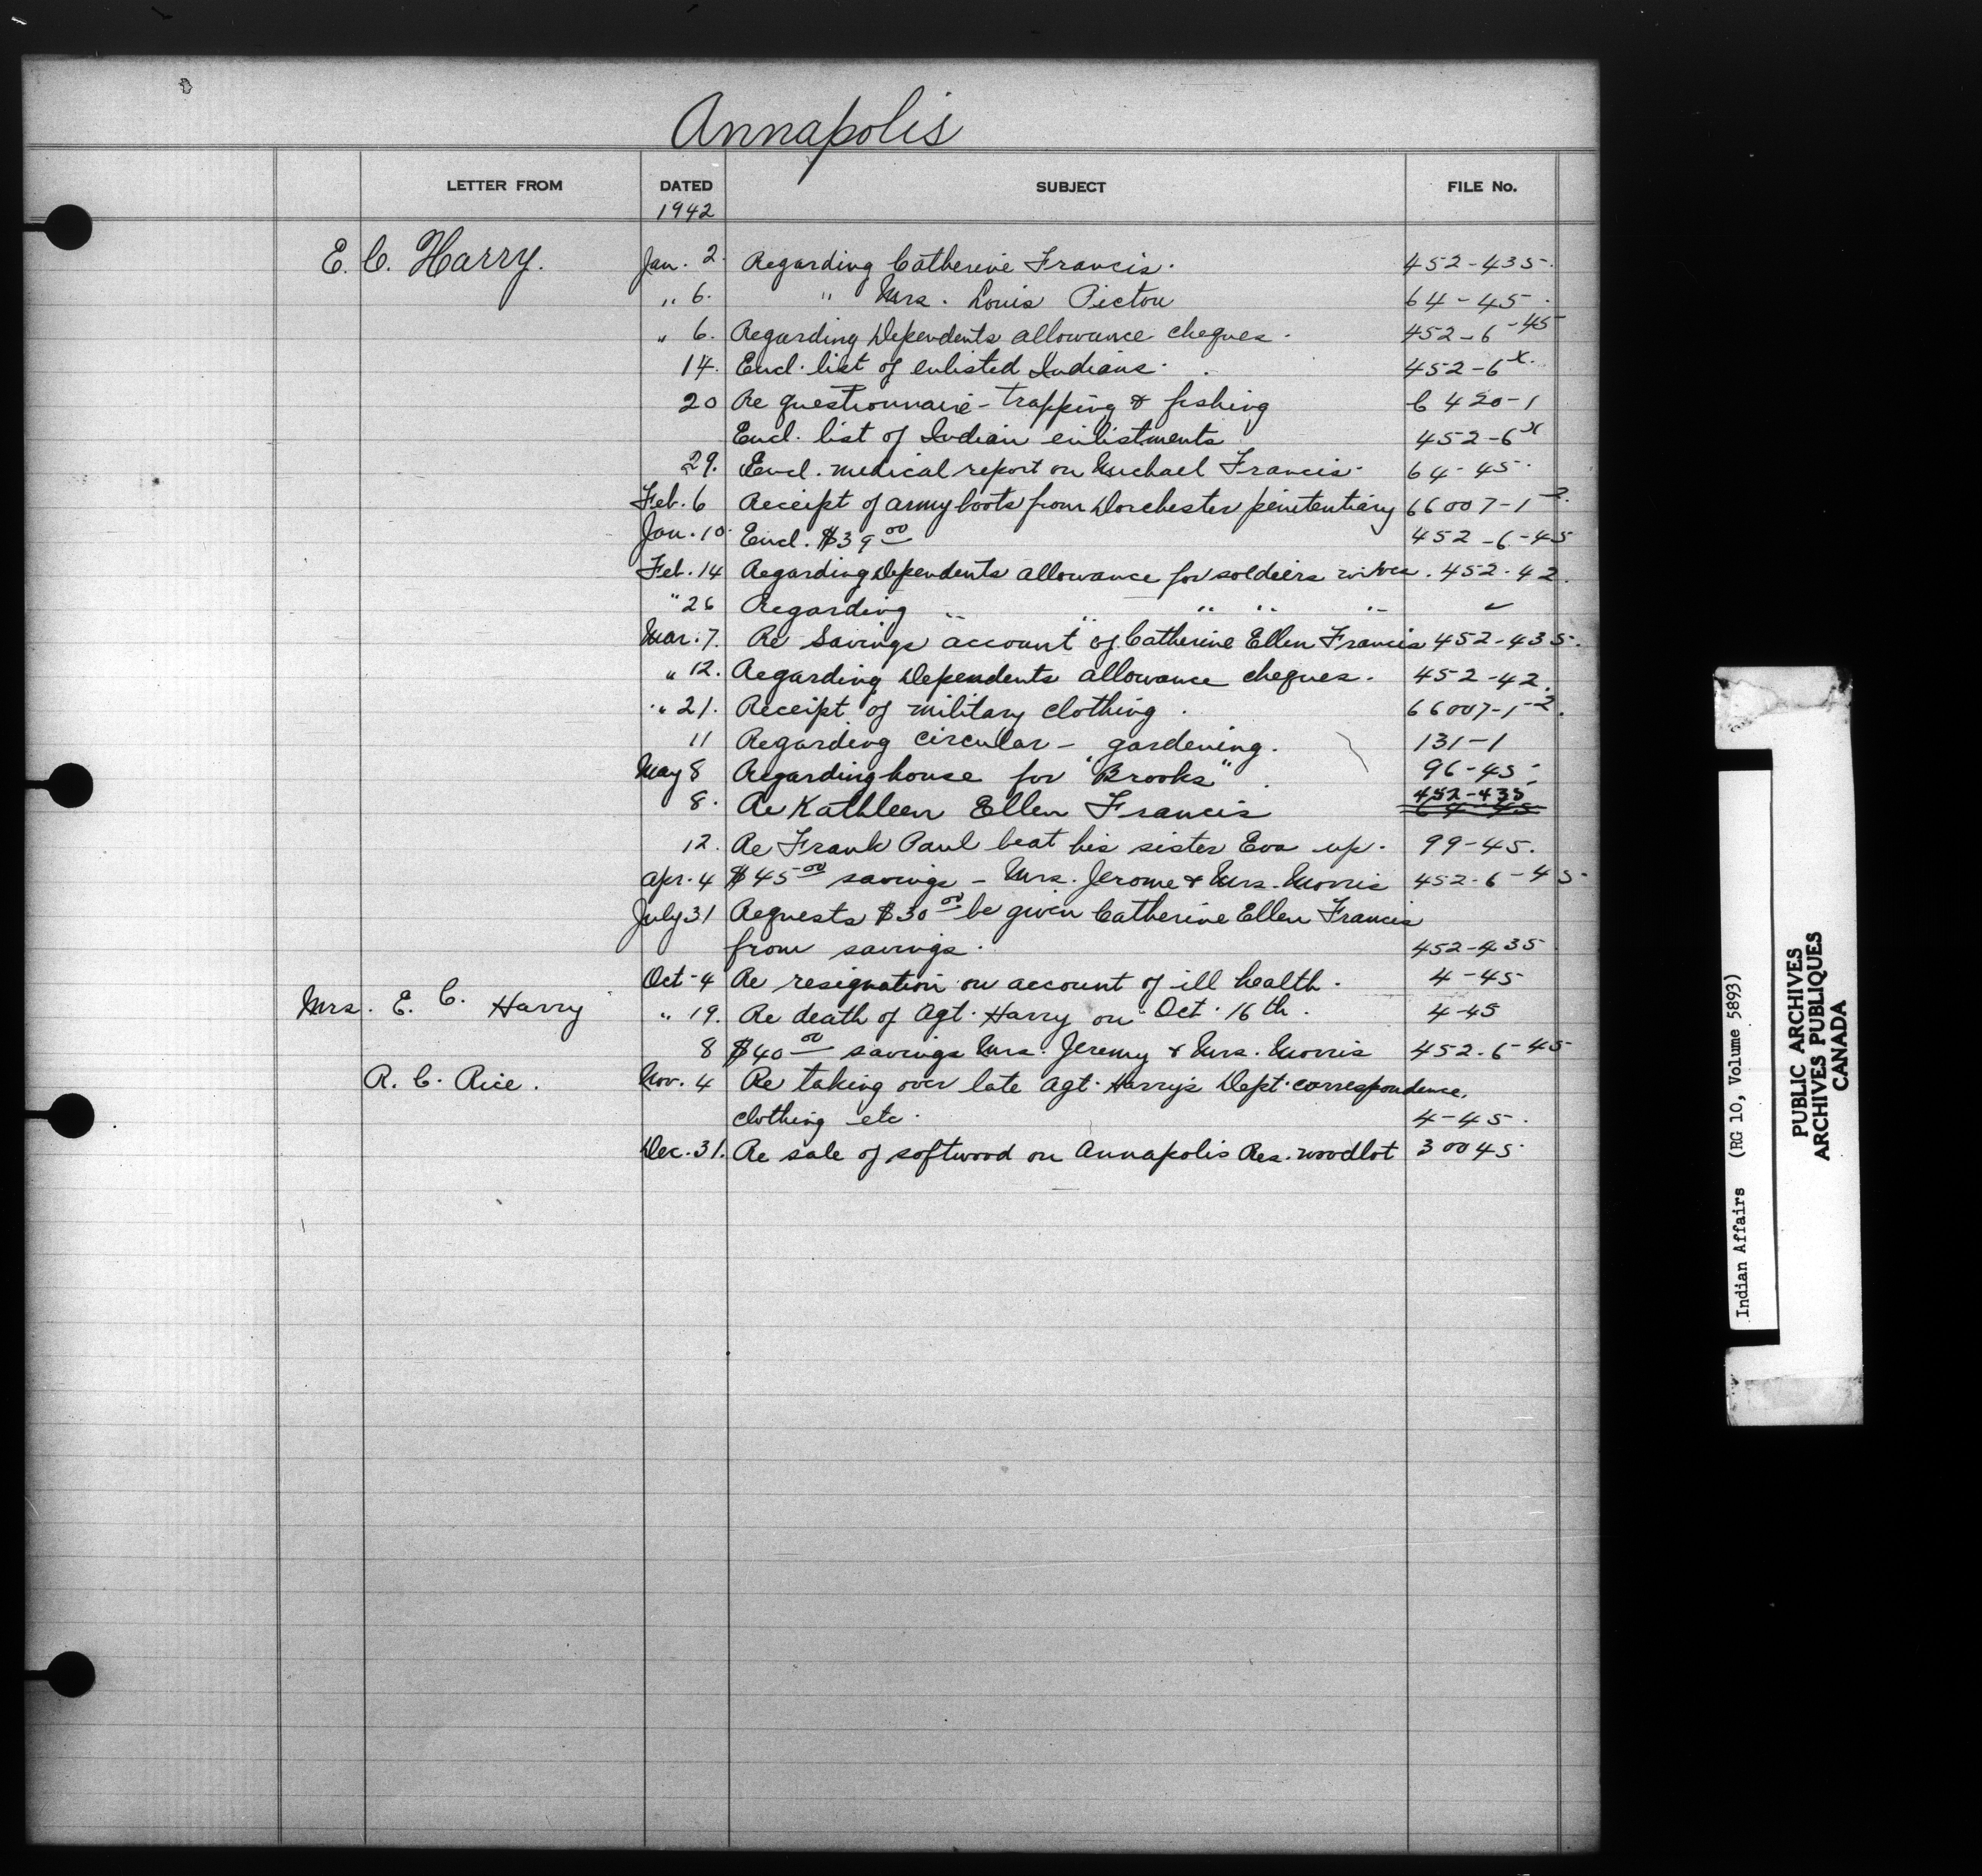 Annapolis
LETTER FROM DATED SUBJECT FILE No.
1942
E. C. Harry. Jan. 2. Regarding Catherine Francis. 452-435.
" 6. " Mrs. Louis Pictou 64-45.
" 6. Regarding Dependents allowance cheques. 452-6-45
14. Encl. list of enlisted Indians. 452-6x.
20 Re questionnaire - trapping & fishing 6420-1
Encl. list of Indian enlistments 452-6x
29. Encl. medical report on Michael Francis. 64-45.
Feb. 6 Receipt of army boots from Dorchester penitentiary 66007-1-2.
Jan. 10. Encl. $39 00 452-6-45
Feb. 14 Regarding Dependents allowance for soldiers wives. 452-42.
" 26 Regarding " " " " " ✓
Mar. 7. Re Savings account of Catherine Ellen Francis 452-435.
" 12. Regarding Dependents allowance cheques. 452-42.
" 21. Receipt of military clothing. 66007-1-2.
11 Regarding circular - gardening. 131-1
May 8 Regarding house for "Brooks". 96-45.
8. Re Kathleen Ellen Francis 452-435
64-45
12. Re Frank Paul beat his sister Eva up. 99-45.
Apr. 4 $45 00 savings - Mrs. Jerome & Mrs. Morris 452-6-45.
July 31 Requests $30 00 be given Catherine Ellen Francis
from savings. 452-435.
Oct-4 Re resignation on account of ill health. 4-45
Mrs. E. C. Harry " 19. Re death of Agt. Harry on Oct. 16th. 4-45
8 $40 00 savings Mrs. Jeremy & Mrs. Morris 452-6-45
R. C. Rice. Nov. 4 Re taking over late Agt. Harry's Dept. correspondence,
clothing etc. 4-45.
Dec. 31. Re sale of softwood on Annapolis Res. woodlot 30045.
Indian Affairs (RG 10, Volume 5893)
PUBLIC ARCHIVES
ARCHIVES PUBLIQUES
CANADA